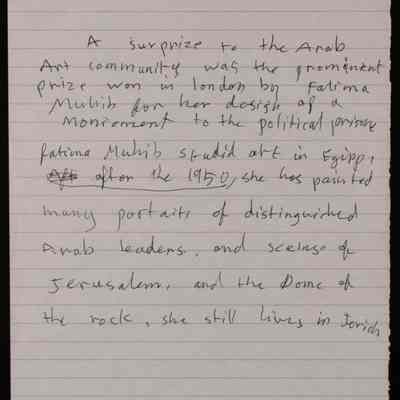 A surprize to the Arab
Art community was the prominent
prize won in london by Fatima
Muhib for her design of a
Moniement to the political prisone
fatima Muhib studid art in Egipp,
after the 1950, she has painted
many portaits of distinguished
Arab leaders, and scenes of
Jerusalem, and the Dome of
the rock, she still lives in Jerich